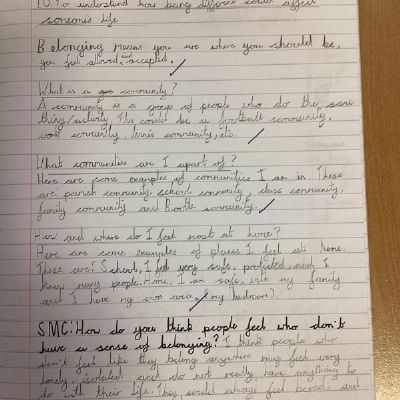 L.O. To understand how being different could affect
someone's life
Belonging means you are where you should be,
you feel accepted.
What is a community?
A community is a group of people who do the same
thing/activity. This could be a football community,
work community, tennis community, etc.
What communities am I apart of?
Here are some examples of communities I am in. These
are: parish community, school community, class community,
family community and Bootle community.
How and where do I feel most at home?
Here are some examples of places I feel at home.
These are: School, I feel very safe, protected and I
know many people. Home, I am safe with my family
and I have my own area (my bedroom).
SMC: How do you think people feel who don't
have a sense of belonging? I think people who
don't feel like they belong anywhere may feel very
lonely, isolated and do not really have anything to
do with their life. They would always feel bored and